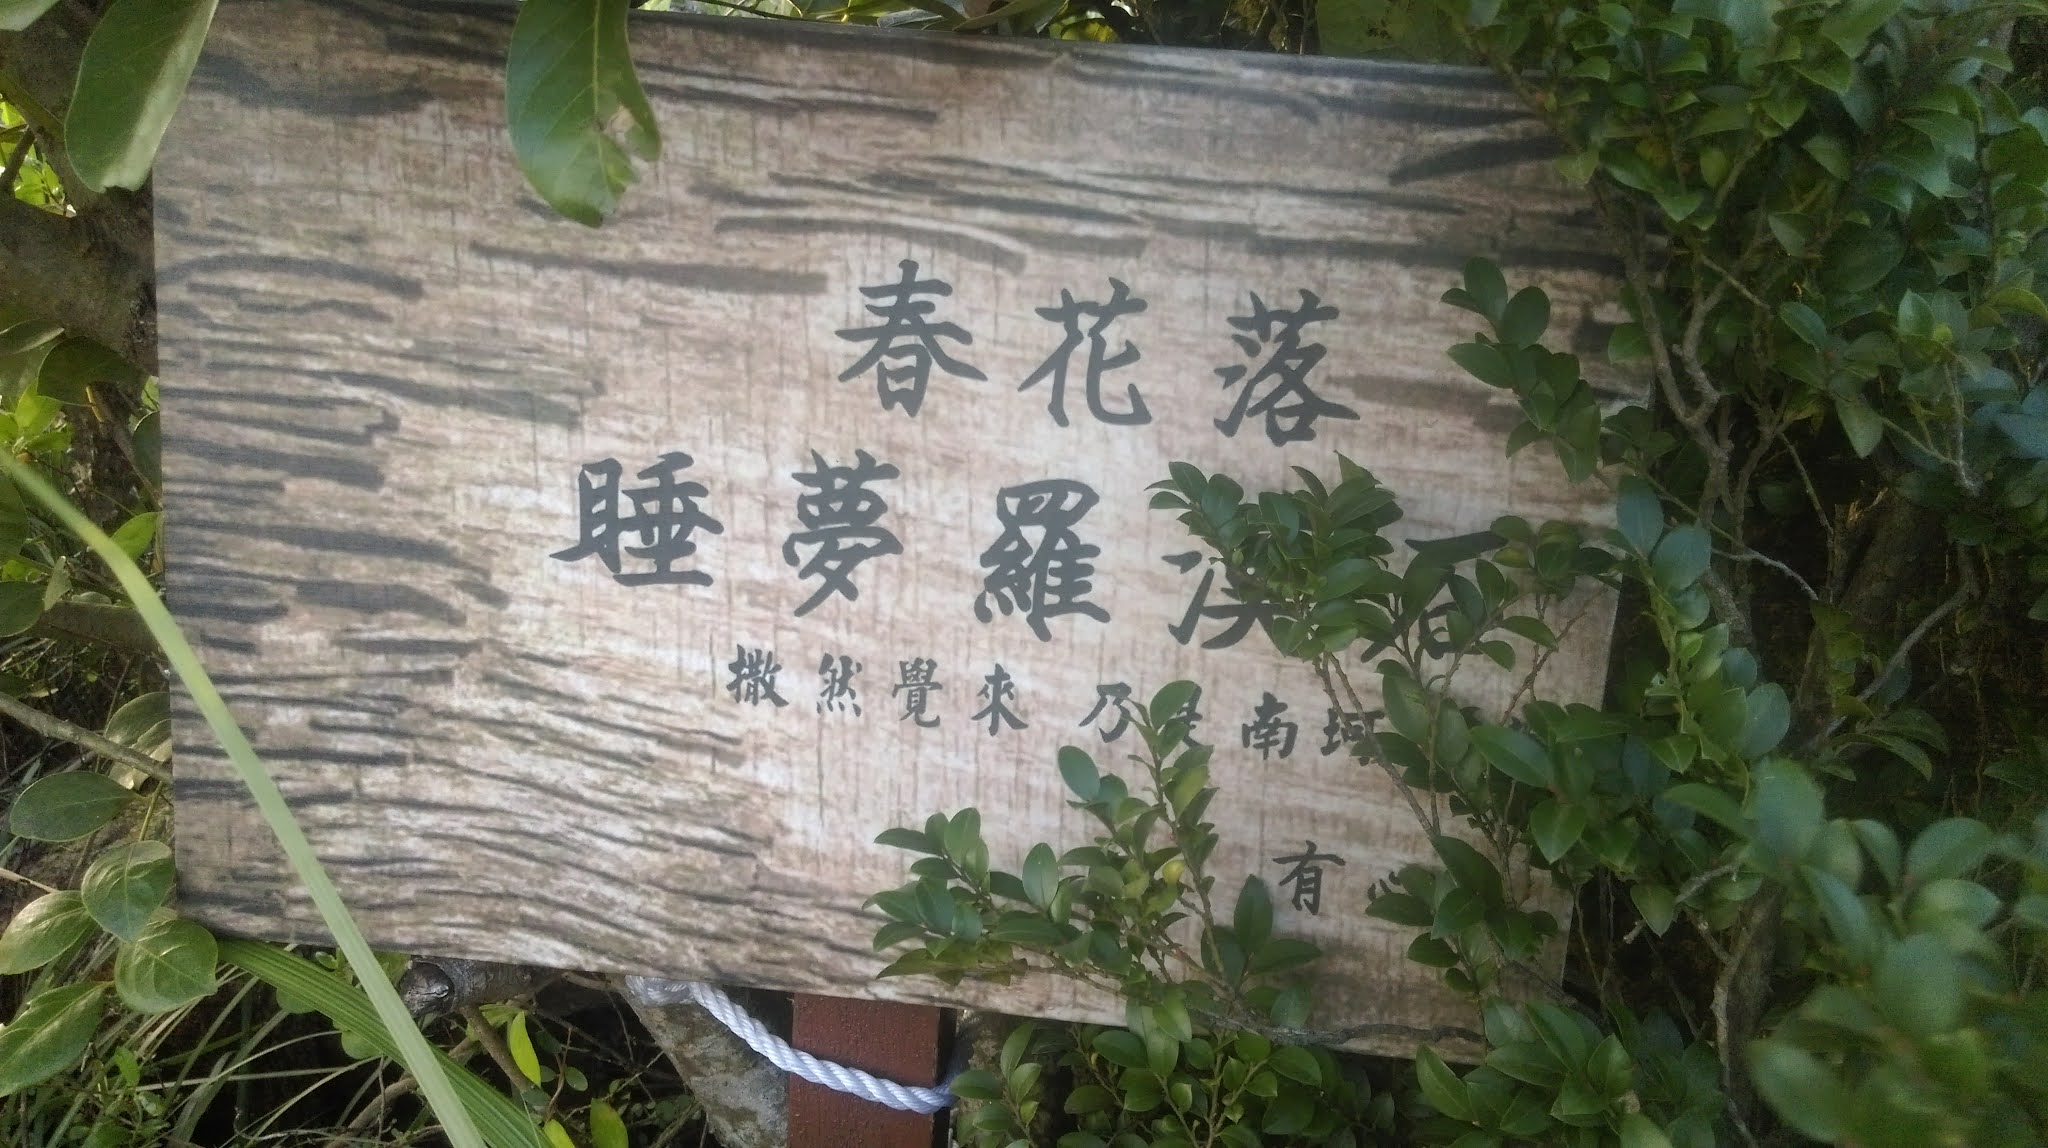 春花落
睡夢羅漢
撒然覺來 乃是南珂
有